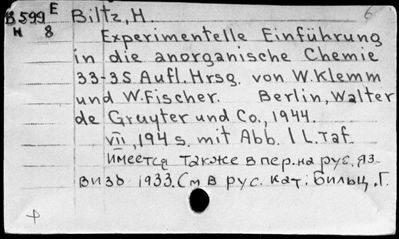 B 599 E Biltz, H. 6
H 8 Experimentelle Einführung
in die anorganische Chemie
33-35 Aufl. Hrsg. von W. Klemm
und W. Fischer. Berlin, Walter
de Gruyter und Co., 1944.
VII, 194 s. mit Abb. 1 L. Taf.
имеется также в пер. на рус. яз
в изд 1933. См в рус. кат: Бильц, Г.